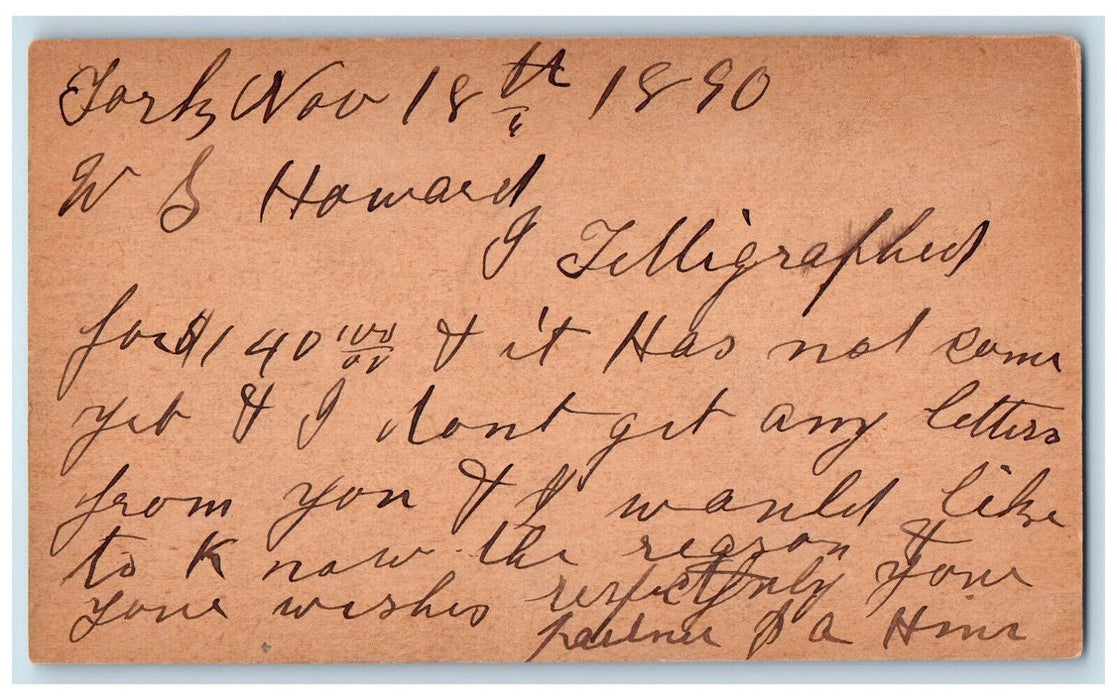 York Nov 18th 1890
W S Howard
I Telligraphed
for $140 00/100 & it Has not come
yet & I dont get any letters
from you & I would like
to Know the reason &
your wishes respectfuly your
partner A Hine